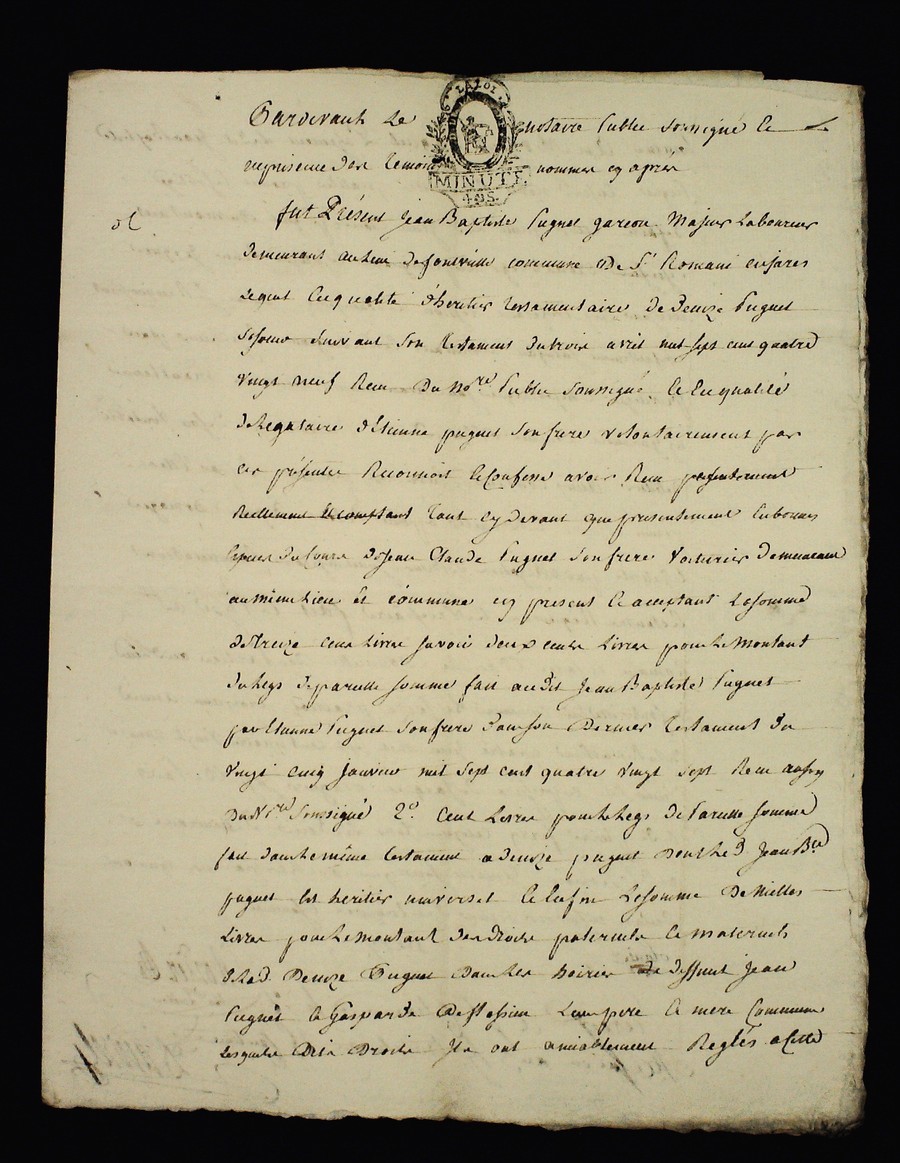 LA LOI
Pardevant Le notaire Public soussigné et
en presence des temoins nommes cy apres
MINUTE
fut Présent Jean Baptiste Pugnet garçon Majeur Laboureur
demeurant au Lieu de fontville commune De St Romain en jares
Lequel En qualité d'heritier testamentaire De Denize Puget
sa soeur suivant son testament du trois avril mil sept cent quatre
vingt neuf Recu Du Nore Public soussigné, et En qualité
de Legataire d'Etienne puget son frere volontairement par
ces présentes Reconnoit et Confesse avoir Recu presentement
Reellement et comptant tant cy devant que presentement En bonnes
Especes du Cours de Jean Claude Puget son frere voiturier demeurant
au même Lieu et commune cy present et acceptant La somme
de treize cent Livres savoir deux cents Livres pour le Montant
du Legs de pareille somme fait audit Jean Baptiste Puget
par Etienne Puget son frere dans son Dernier testament du
vingt cinq janvier mil sept cent quatre vingt sept Recu aussy
Du Nre Soussigné 2o. Cent Livres pour le Legs de Pareille somme
fait dans le même testament a denize puget dont le d Jean Bte
puget Est heritier universel et Enfin La somme De Milles
Livres pour le montant des droits paternels et maternels
de lad Denize Puget dans les hoiries de deffunt Jean
Puget et Gasparde Leur pere et mere Commune
Lesquels Dits Droits Ils ont amiablement Reglés a Cette